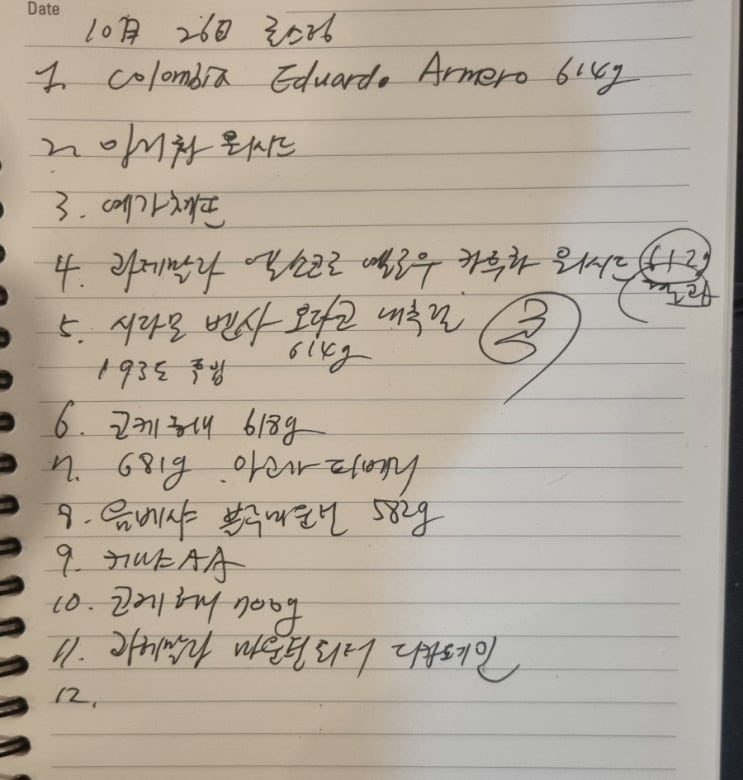 Date
10月 26日 로스팅
1. Colombia Eduardo Armero 614g
2. 워시드
3. 예가체프
4. 과테말라 엘소코로 옐로우 워시드 612g
5. 시다모 벤사 내추럴
614g
193도 투입
6. 코케 허니 618g
7. 681g
8. 블루마운틴 582g
9. 케냐 AA
10. 코케 허니 700g
11. 과테말라 마운틴워터 디카페인
12.